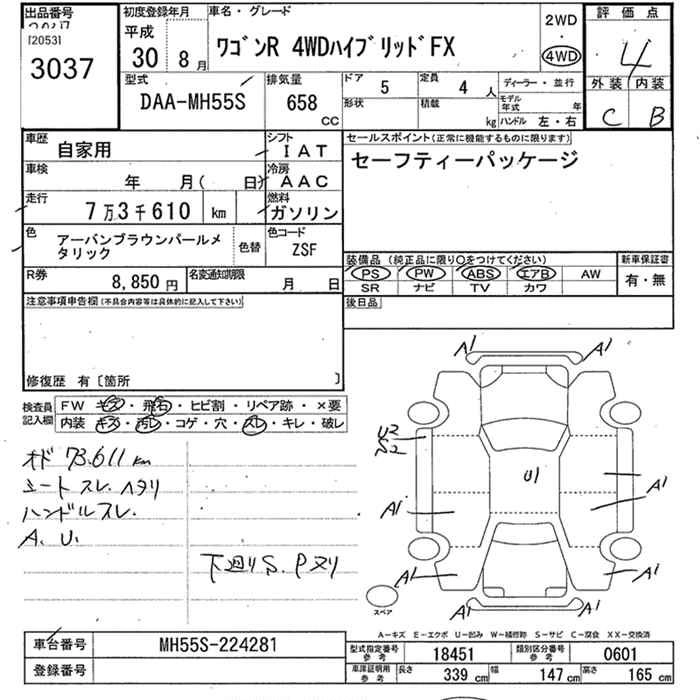 出品番号
[2053]
3037
初度登録年月
平成
30年 8月
車名・グレード
ワゴンR 4WDハイブリッドFX
2WD
・
4WD
評価点
4
外装 内装
C B
型式
DAA-MH55S
排気量
658
CC
ドア 5
定員 4 人
形状
積載 kg
ディーラー・並行
モデル年式 年
ハンドル 左・右
車歴
自家用
シフト
IAT
車検
年 月( 日)
冷房
AAC
走行
7万3千610 km
燃料
ガソリン
色
アーバンブラウンパールメタリック
色替
色コード
ZSF
R券
8,850円
名変通知期限
月 日
セールスポイント(正常に機能するものに限ります)
セーフティーパッケージ
装備品(純正品に限り○をつけてください)
PS PW ABS エアB AW
SR ナビ TV カワ
新車保証書
有・無
後日品
注意事項申告欄(不具合内容等は具体的に記入して下さい)
修復歴 有〔箇所 〕
検査員記入欄
FW キズ・飛石・ヒビ割・リペア跡・×要
内装 キズ・汚レ・コゲ・穴・スレ・キレ・破レ
オド 73,611km
シート スレ、ヘタリ
ハンドルスレ、
A. U.
下廻りS. Pヌリ
A1 A1
U2
S2
U1
A1 A1
A1 A1
A1 A1
スペア
A-キズ E-エクボ U-凹み W-補修跡 S-サビ C-腐食 XX-交換済
車台番号
MH55S-224281
登録番号
型式指定番号 参考
18451
類別区分番号 参考
0601
車庫証明用 参考
長さ 339 cm 幅 147 cm 高さ 165 cm